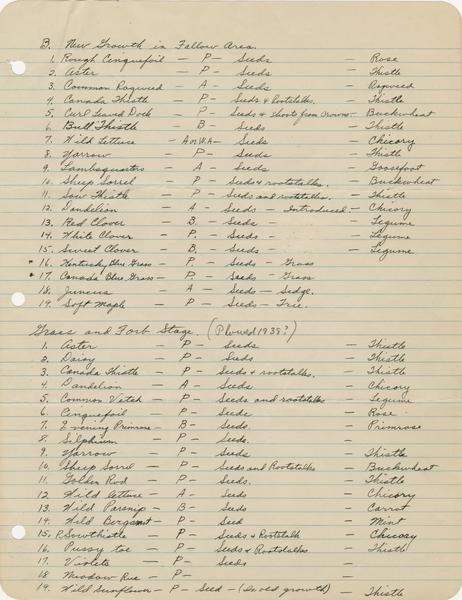 B. New Growth in Fallow Area.
1. Rough Cinquefoil - P - Seeds - Rose
2. Aster - P - Seeds - Thistle
3. Common Ragweed - A - Seeds - Ragweed
4. Canada Thistle - P - Seeds & Rootstalks. - Thistle
5. Curl Leaved Dock - P - Seeds & Shoots from Crowns - Buckwheat
6. Bull Thistle - B - Seeds - Thistle
7. Wild Lettuce - A or W.A - Seeds - Chicory
8. Yarrow - P - Seeds - Thistle
9. Lambsquarters - A - Seeds - Goosefoot
10. Sheep Sorrel - P - Seeds & rootstalks. - Buckwheat
11. Sow Thistle - P - Seeds and rootstalks. - Thistle
12. Dandelion - A - Seeds - Introduced - Chicory
13. Red Clover - B. - Seeds - Legume
14. White Clover - P. - Seeds - Legume
15. Sweet Clover - B. - Seeds - Legume
* 16. Kentucky Blue Grass - P. - Seeds - Grass
* 17. Canada Blue Grass - P. Seeds - Grass
18. Juncus - A - Seeds - Sedge.
19. Soft Maple - P - Seeds - Tree.
Grass and Forb Stage. (Plowed 1939?)
1. Aster - P - Seeds - Thistle
2. Daisy - P - Seeds - Thistle
3. Canada Thistle - P - Seeds & rootstalks. - Thistle
4. Dandelion - A - Seeds - Chicory
5. Common Vetch - P - Seeds and rootstalks - Legume
6. Cinquefoil - P - Seeds - Rose
7. Evening Primrose - B - Seeds. - Primrose
8. Silphium - P - Seeds. -
9. Yarrow - P - Seeds - Thistle
10. Sheep Sorrel - P - Seeds and Rootstalks - Buckwheat
11. Golden Rod - P - Seeds. - Thistle
12. Wild lettuce - A - Seeds - Chicory
13. Wild Parsnip - B - Seeds - Carrot
14. Wild Bergamot - P - Seed - Mint
15. Sowthistle - P - Seeds & Rootstalk - Chicory
16. Pussy toe - P - Seeds & Rootstalks - Thistle
17. Violets - P - Seeds -
18 Meadow Rue - P - -
19. Wild Sunflower - P - Seed - (In old growth) - Thistle